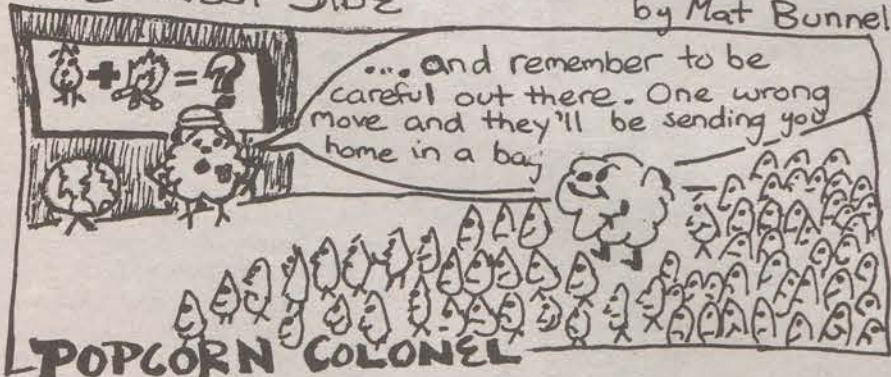 SIDE
by Mat Bunnel
+ = ?
... and remember to be
careful out there. One wrong
move and they'll be sending you
home in a bag
POPCORN COLONEL